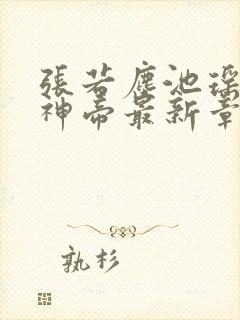 張若塵池瑤
神帝最新章
孰杉